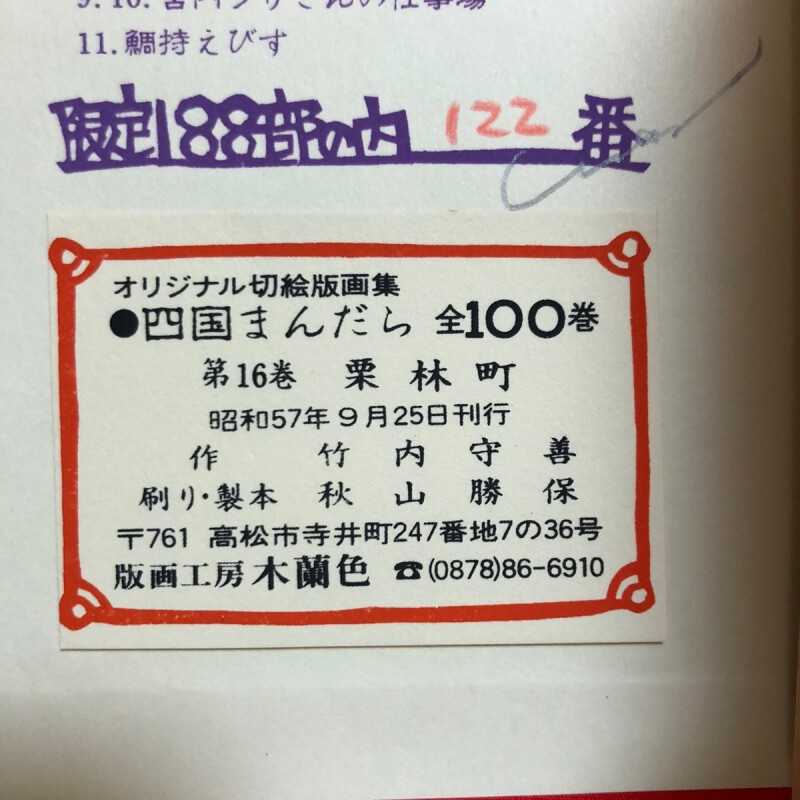 11.鯛持えびす
限定188部の内 122 番
オリジナル切絵版画集
●四国まんだら 全100巻
第16巻 栗林町
昭和57年9月25日刊行
作 竹内守善
刷り・製本 秋山勝保
〒761 高松市寺井町247番地7の36号
版画工房 木蘭色 ☎(0878)86-6910